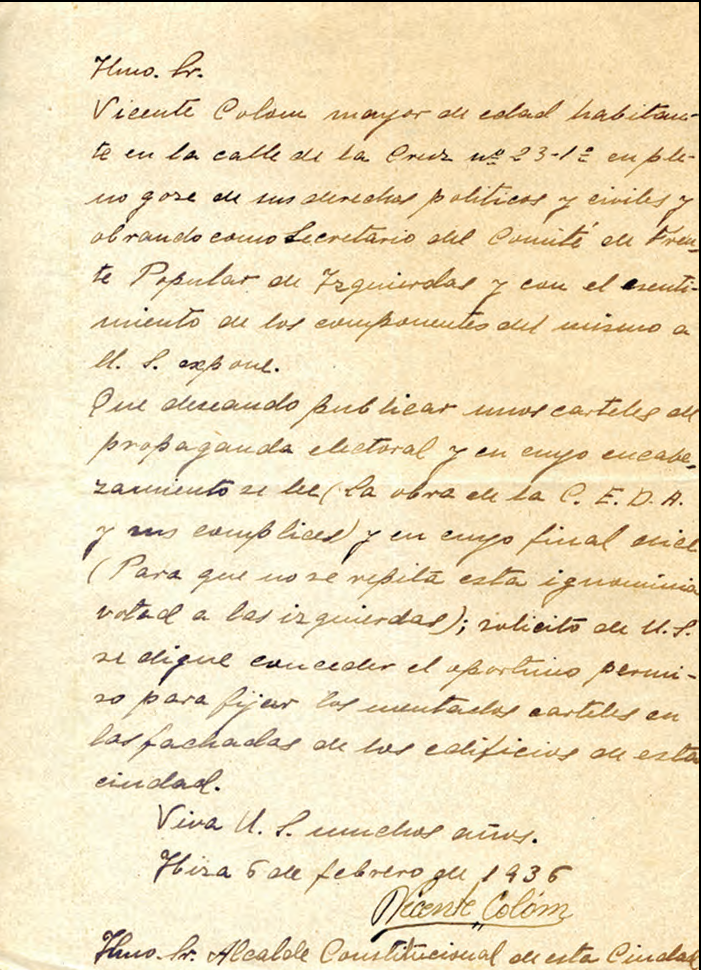 Ilmo. Sr.
Vicente Colom mayor de edad habitan-
te en la calle de la Cruz nº 23-1º en ple-
no goze de sus derechos politicos y civiles y
obrando como Secretario del Comité de Fren-
te Popular de Izquierdas y con el asenti-
miento de los componentes del mismo a
U. S. expone.
Que deseando publicar unos carteles de
propaganda electoral y en cuyo encabe-
zamiento se lee (La obra de la C. E. D. A.
y sus complices) y en cuyo final
(Para que no se repita esta ignominia
votad a las izquierdas); solicito de U. S.
se digne conceder el oportuno permi-
so para fijar los mentados carteles en
las fachadas de los edificios de esta
ciudad.
Viva U. S. muchos años.
Ibiza 6 de febrero de 1936
Vicente Colóm
Ilmo. Sr. Alcalde Constitucional de esta Ciudad